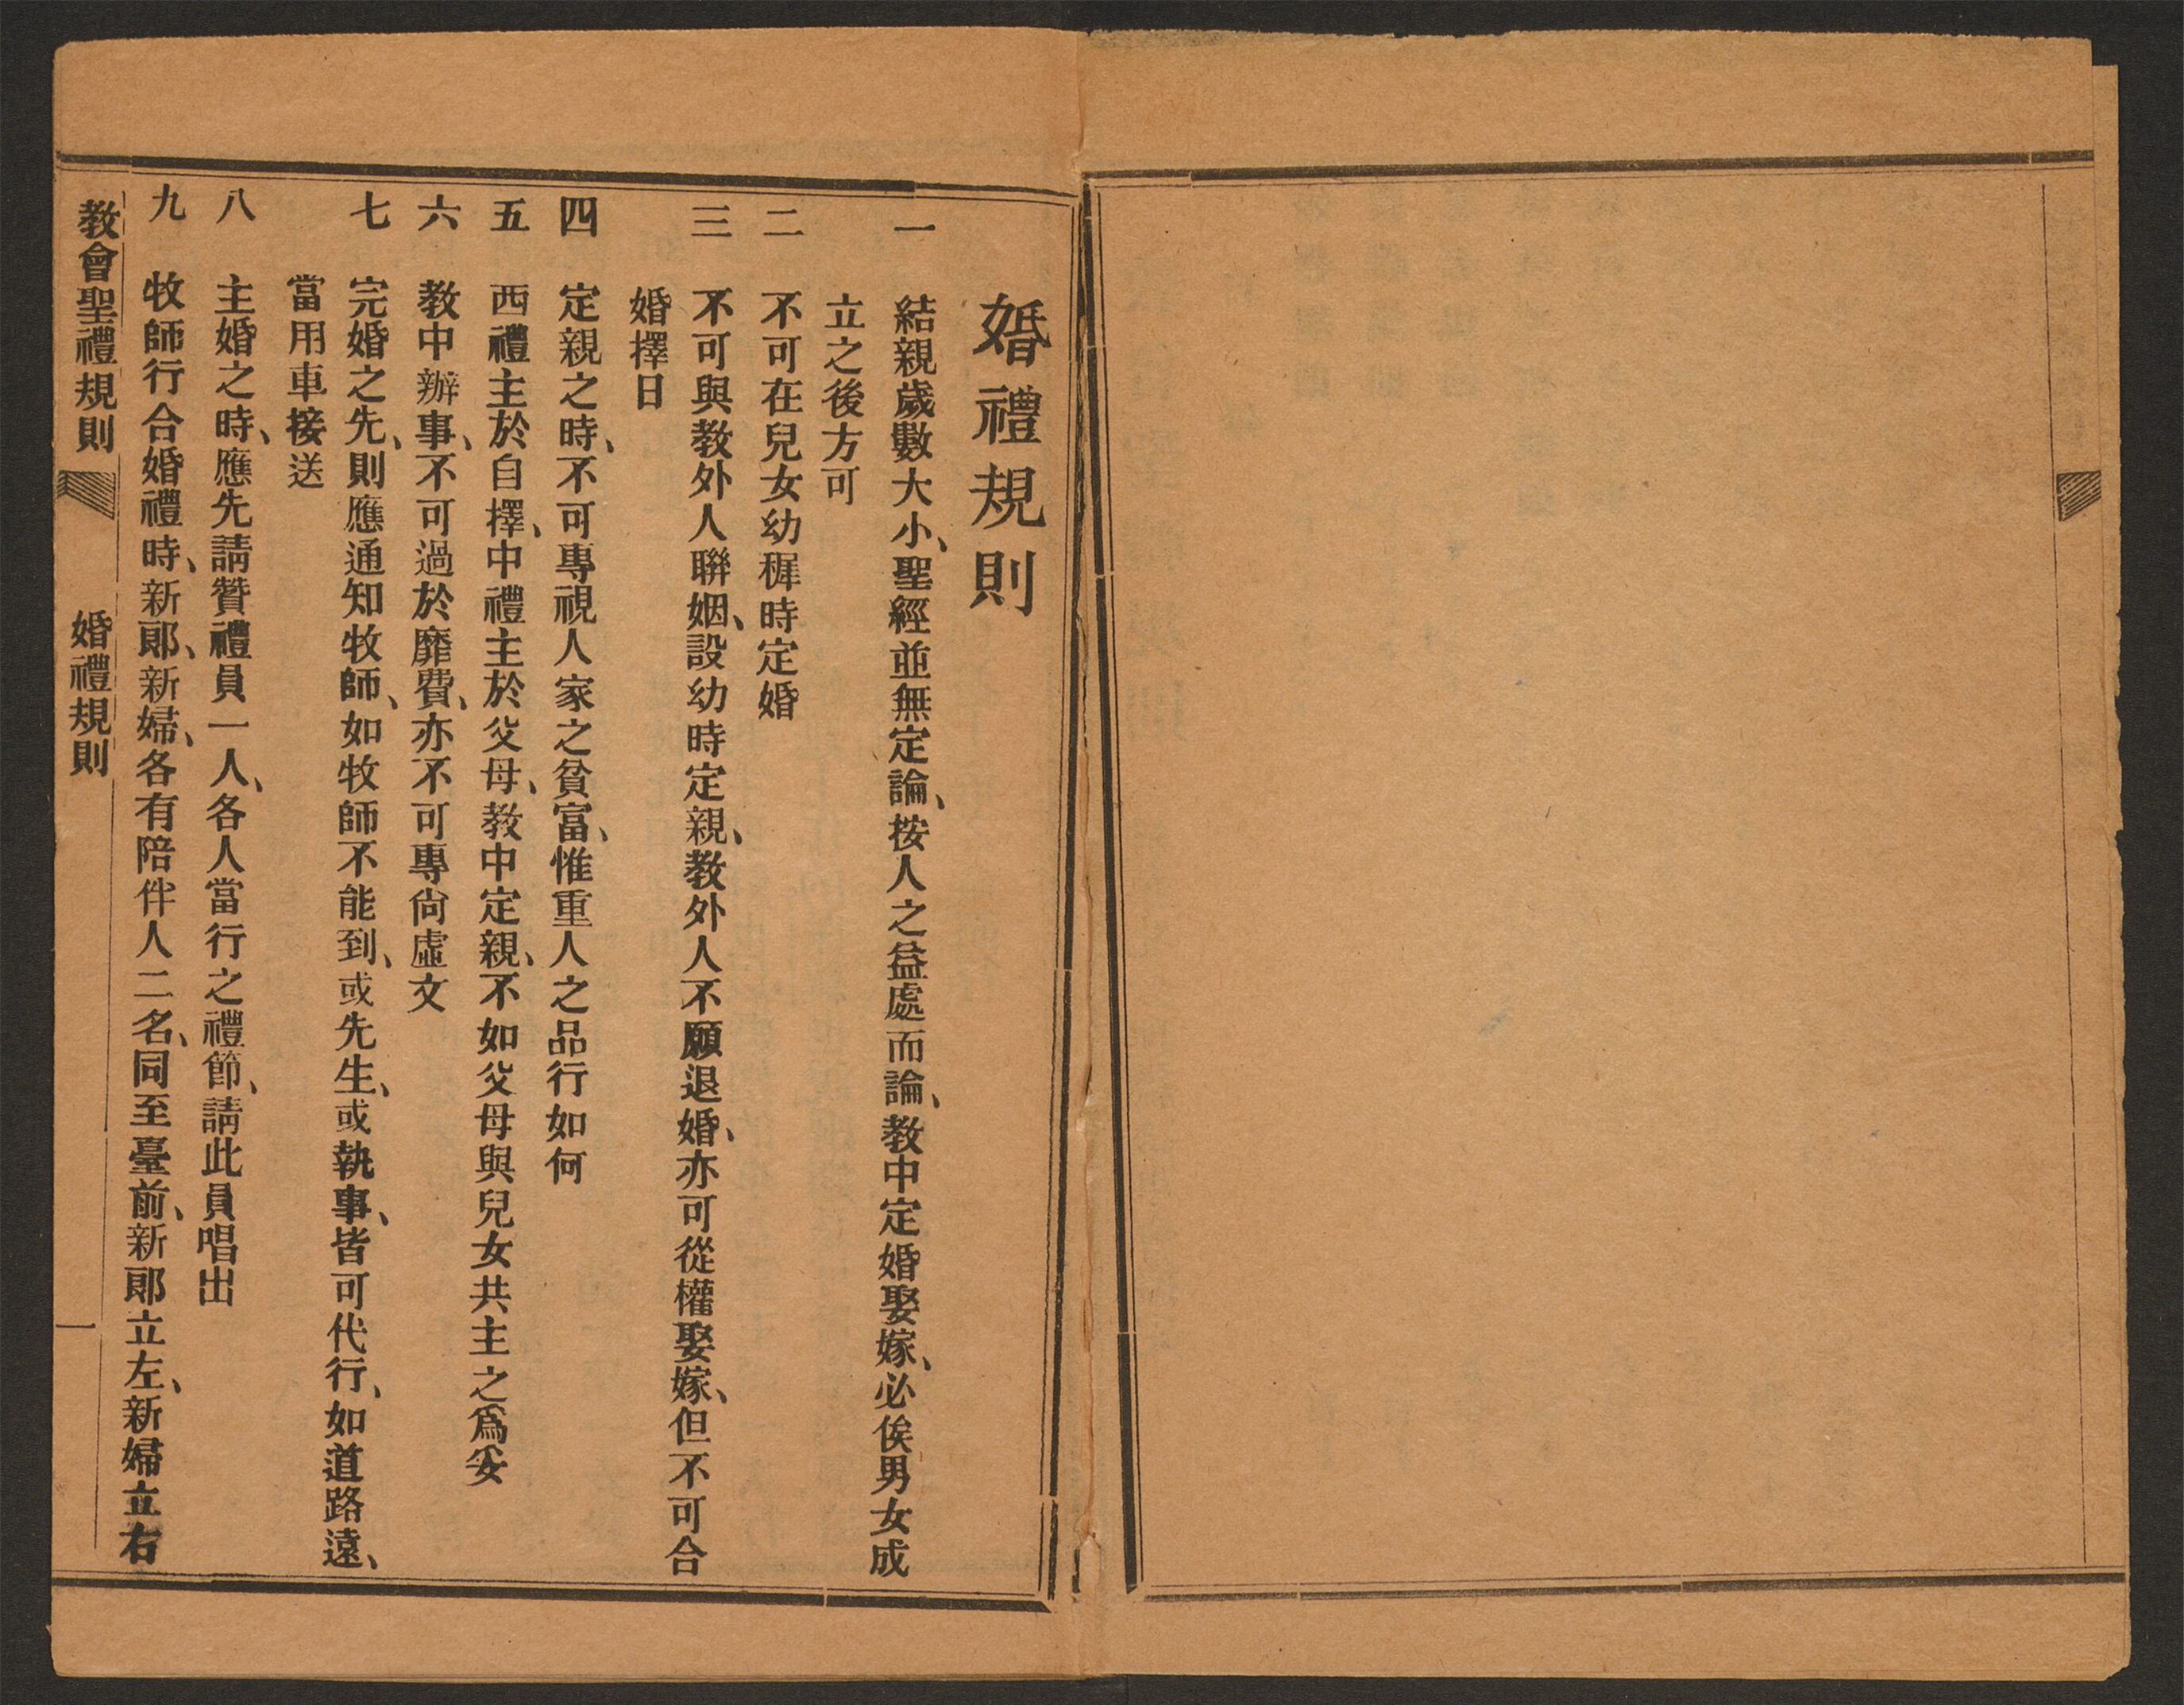 婚禮規則
一 結親歲數大小、聖經並無定論、按人之益處而論、教中定婚娶嫁、必俟男女成
立之後方可
二 不可在兒女幼穉時定婚
三 不可與教外人聯姻、設幼時定親、教外人不願退婚、亦可從權娶嫁、但不可合
婚擇日
四 定親之時、不可專視人家之貧富、惟重人之品行如何
五 西禮主於自擇、中禮主於父母、教中定親、不如父母與兒女共主之爲妥
六 教中辦事、不可過於靡費、亦不可專尙虛文
七 完婚之先、則應通知牧師、如牧師不能到、或先生、或執事、皆可代行、如道路遠、
當用車接送
八 主婚之時、應先請贊禮員一人、各人當行之禮節、請此員唱出
九 牧師行合婚禮時、新郞、新婦、各有陪伴人二名、同至臺前、新郞立左、新婦立右
教會聖禮規則 婚禮規則 一